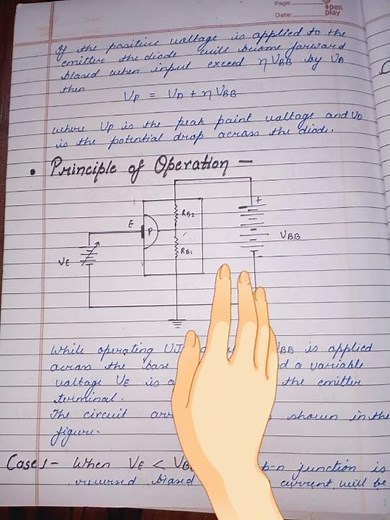 Page:
Date:
If the positive voltage is applied to the
emitter the diode will become forward
biased when input exceed ηVBB by VD
then
VP = VD + ηVBB
where VP is the peak point voltage and VD
is the potential drop across the diode.
• Principle of Operation –
RB2
E
P
RB1
VE
+
VBB
While operating UJ VBB is applied
across the base d a variable
voltage VE is a the emitter
terminal.
The circuit arr shown in the
figure.
Case 1- When VE < VB p-n junction is
reversed biased current will be